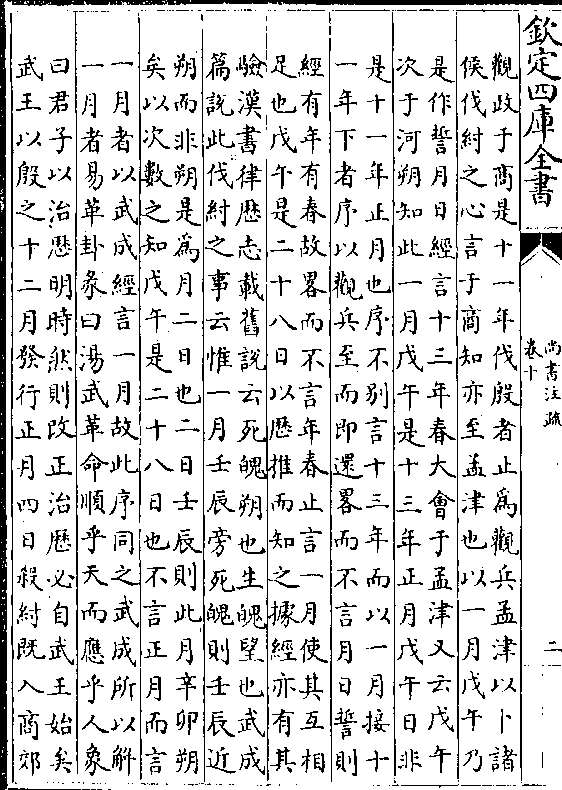 欽定四庫全書
尚書注疏
卷十
二
觀政于商是十一年伐殷者止爲觀兵孟津以卜諸
侯伐紂之心言于商知亦至孟津也以一月戊午乃
是作誓月日經言十三年春大會于孟津又云戊午
次于河朔知此一月戊午是十三年正月戊午日非
是十一年正月也序不别言十三年而以一月接十
一年下者序以觀兵至而即還畧而不言月日誓則
經有年有春故畧而不言年春止言一月使其互相
足也戊午是二十八日以歴推而知之據經亦有其
驗漢書律歴志載舊説云死魄朔也生魄望也武成
篇説此伐紂之事云惟一月壬辰旁死魄則壬辰近
朔而非朔是爲月二日也二日壬辰則此月辛卯朔
矣以次數之知戊午是二十八日也不言正月而言
一月者以武成經言一月故此序同之武成所以解
一月者易革卦彖曰湯武革命順乎天而應乎人象
曰君子以治歴明時然則改正治歴必自武王始矣
武王以殷之十二月發行正月四日殺紂既入商郊